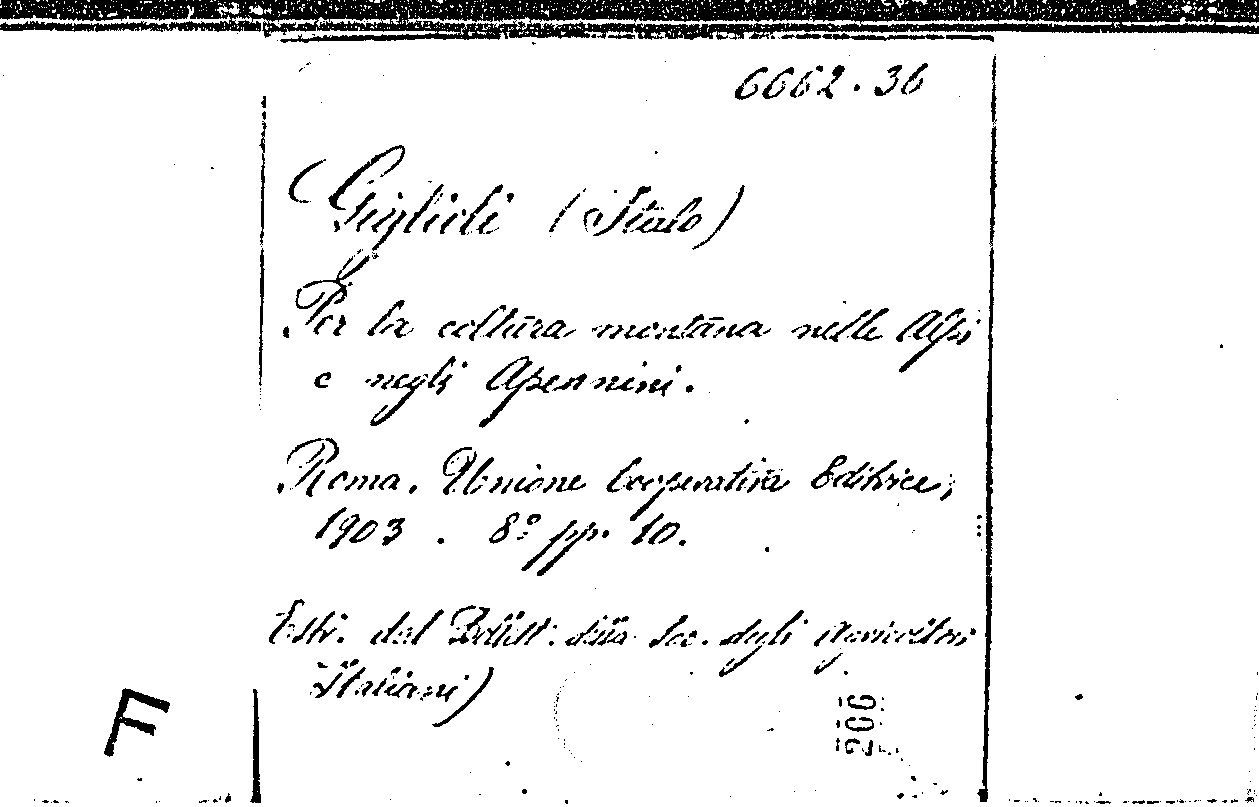 6662.36
Giglioli (Italo)
Per la coltura montana nelle Alpi
e negli Apennini.
Roma. Unione Cooperativa Editrice,
1903. 8º pp. 10.
Estr. dal Bollett. della Soc. degli Agricoltori
Italiani)
F
200